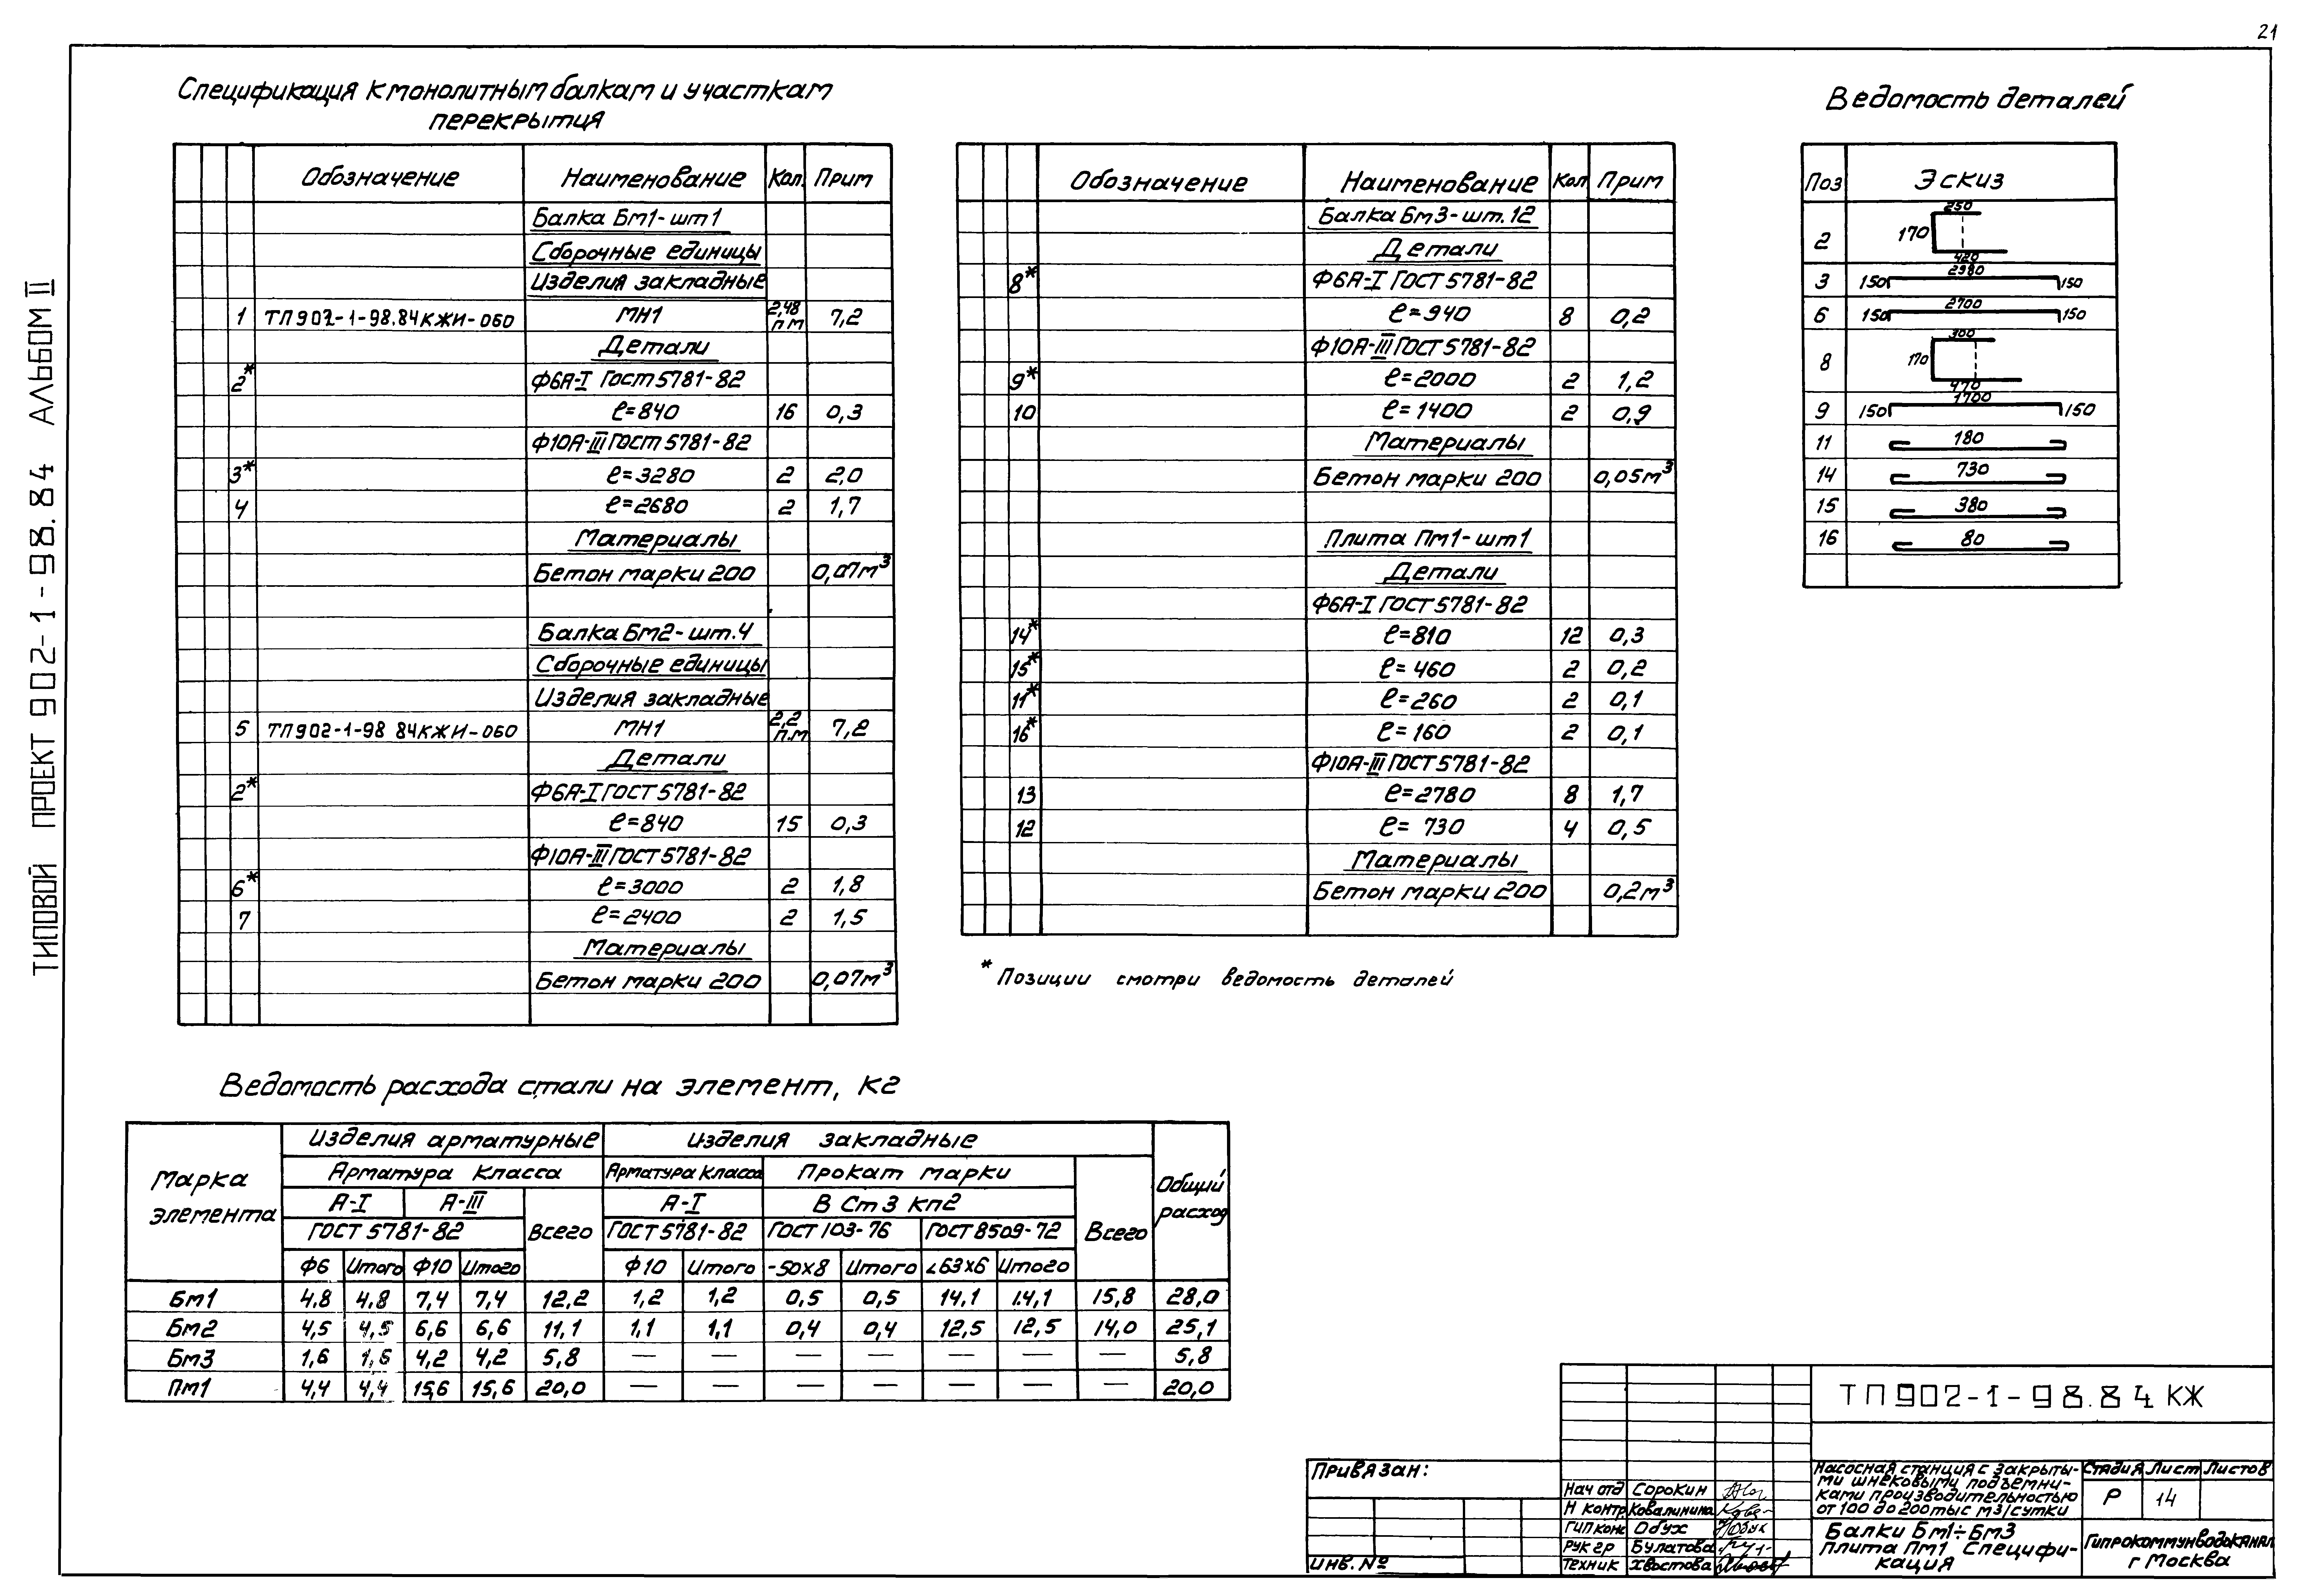 21
ТИПОВОЙ ПРОЕКТ 902-1-98.84 АЛЬБОМ II
Спецификация к монолитным балкам и участкам
перекрытия
Обозначение Наименование Кол. Прим
Балка Бм1-шт1
Сборочные единицы
Изделия закладные
1 ТП902-1-98.84КЖИ-060 МН1 2,48 п.м 7,2
Детали
2* Ф6А-I Гост 5781-82
ℓ=840 16 0,3
Ф10А-III Гост 5781-82
3* ℓ=3280 2 2,0
4 ℓ=2680 2 1,7
Материалы
Бетон марки 200 0,07м³
Балка Бм2-шт.4
Сборочные единицы
Изделия закладные
5 ТП902-1-98 84КЖИ-060 МН1 2,2 п.м 7,2
Детали
2* Ф6А-I ГОСТ 5781-82
ℓ=840 15 0,3
Ф10А-III ГОСТ 5781-82
6* ℓ=3000 2 1,8
7 ℓ=2400 2 1,5
Материалы
Бетон марки 200 0,07м³
Обозначение Наименование Кол Прим
Балка Бм3-шт.12
Детали
8* Ф6А-I ГОСТ 5781-82
ℓ=940 8 0,2
Ф10А-III ГОСТ 5781-82
9* ℓ=2000 2 1,2
10 ℓ=1400 2 0,9
Материалы
Бетон марки 200 0,05м³
Плита Пм1-шт1
Детали
Ф6А-I ГОСТ 5781-82
14* ℓ=810 12 0,3
15* ℓ=460 2 0,2
11* ℓ=260 2 0,1
16* ℓ=160 2 0,1
Ф10А-III ГОСТ 5781-82
13 ℓ=2780 8 1,7
12 ℓ= 730 4 0,5
Материалы
Бетон марки 200 0,2м³
* Позиции смотри ведомость деталей
Ведомость деталей
Поз Эскиз
2 250 170 420
3 150 2980 150
6 150 2700 150
8 300 170 470
9 150 1700 150
11 180
14 730
15 380
16 80
Ведомость расхода стали на элемент, кг
Марка элемента Изделия арматурные Изделия закладные Общий расход
Арматура класса Арматура класса Прокат марки
А-I А-III Всего А-I В Ст3 кп2 Всего
ГОСТ 5781-82 ГОСТ 5781-82 ГОСТ 103-76 ГОСТ 8509-72
Ф6 Итого Ф10 Итого Ф10 Итого -50х8 Итого ∠63х6 Итого
Бм1 4,8 4,8 7,4 7,4 12,2 1,2 1,2 0,5 0,5 14,1 14,1 15,8 28,0
Бм2 4,5 4,5 6,6 6,6 11,1 1,1 1,1 0,4 0,4 12,5 12,5 14,0 25,1
Бм3 1,6 1,6 4,2 4,2 5,8 — — — — — — — 5,8
Пм1 4,4 4,4 15,6 15,6 20,0 — — — — — — — 20,0
Привязан:
Инв. №
Нач отд Сорокин
Н контр. Ковалинина
Гип конс Обух
Рук гр Булатова
Техник Хвостова
ТП902-1-98.84 КЖ
Насосная станция с закрыты-
ми шнековыми подъемни-
ками производительностью
от 100 до 200 тыс м3/сутки
Стадия Лист Листов
Р 14
Балки Бм1÷Бм3
Плита Пм1 Специфи-
кация
Гипрокоммунводоканал
г Москва